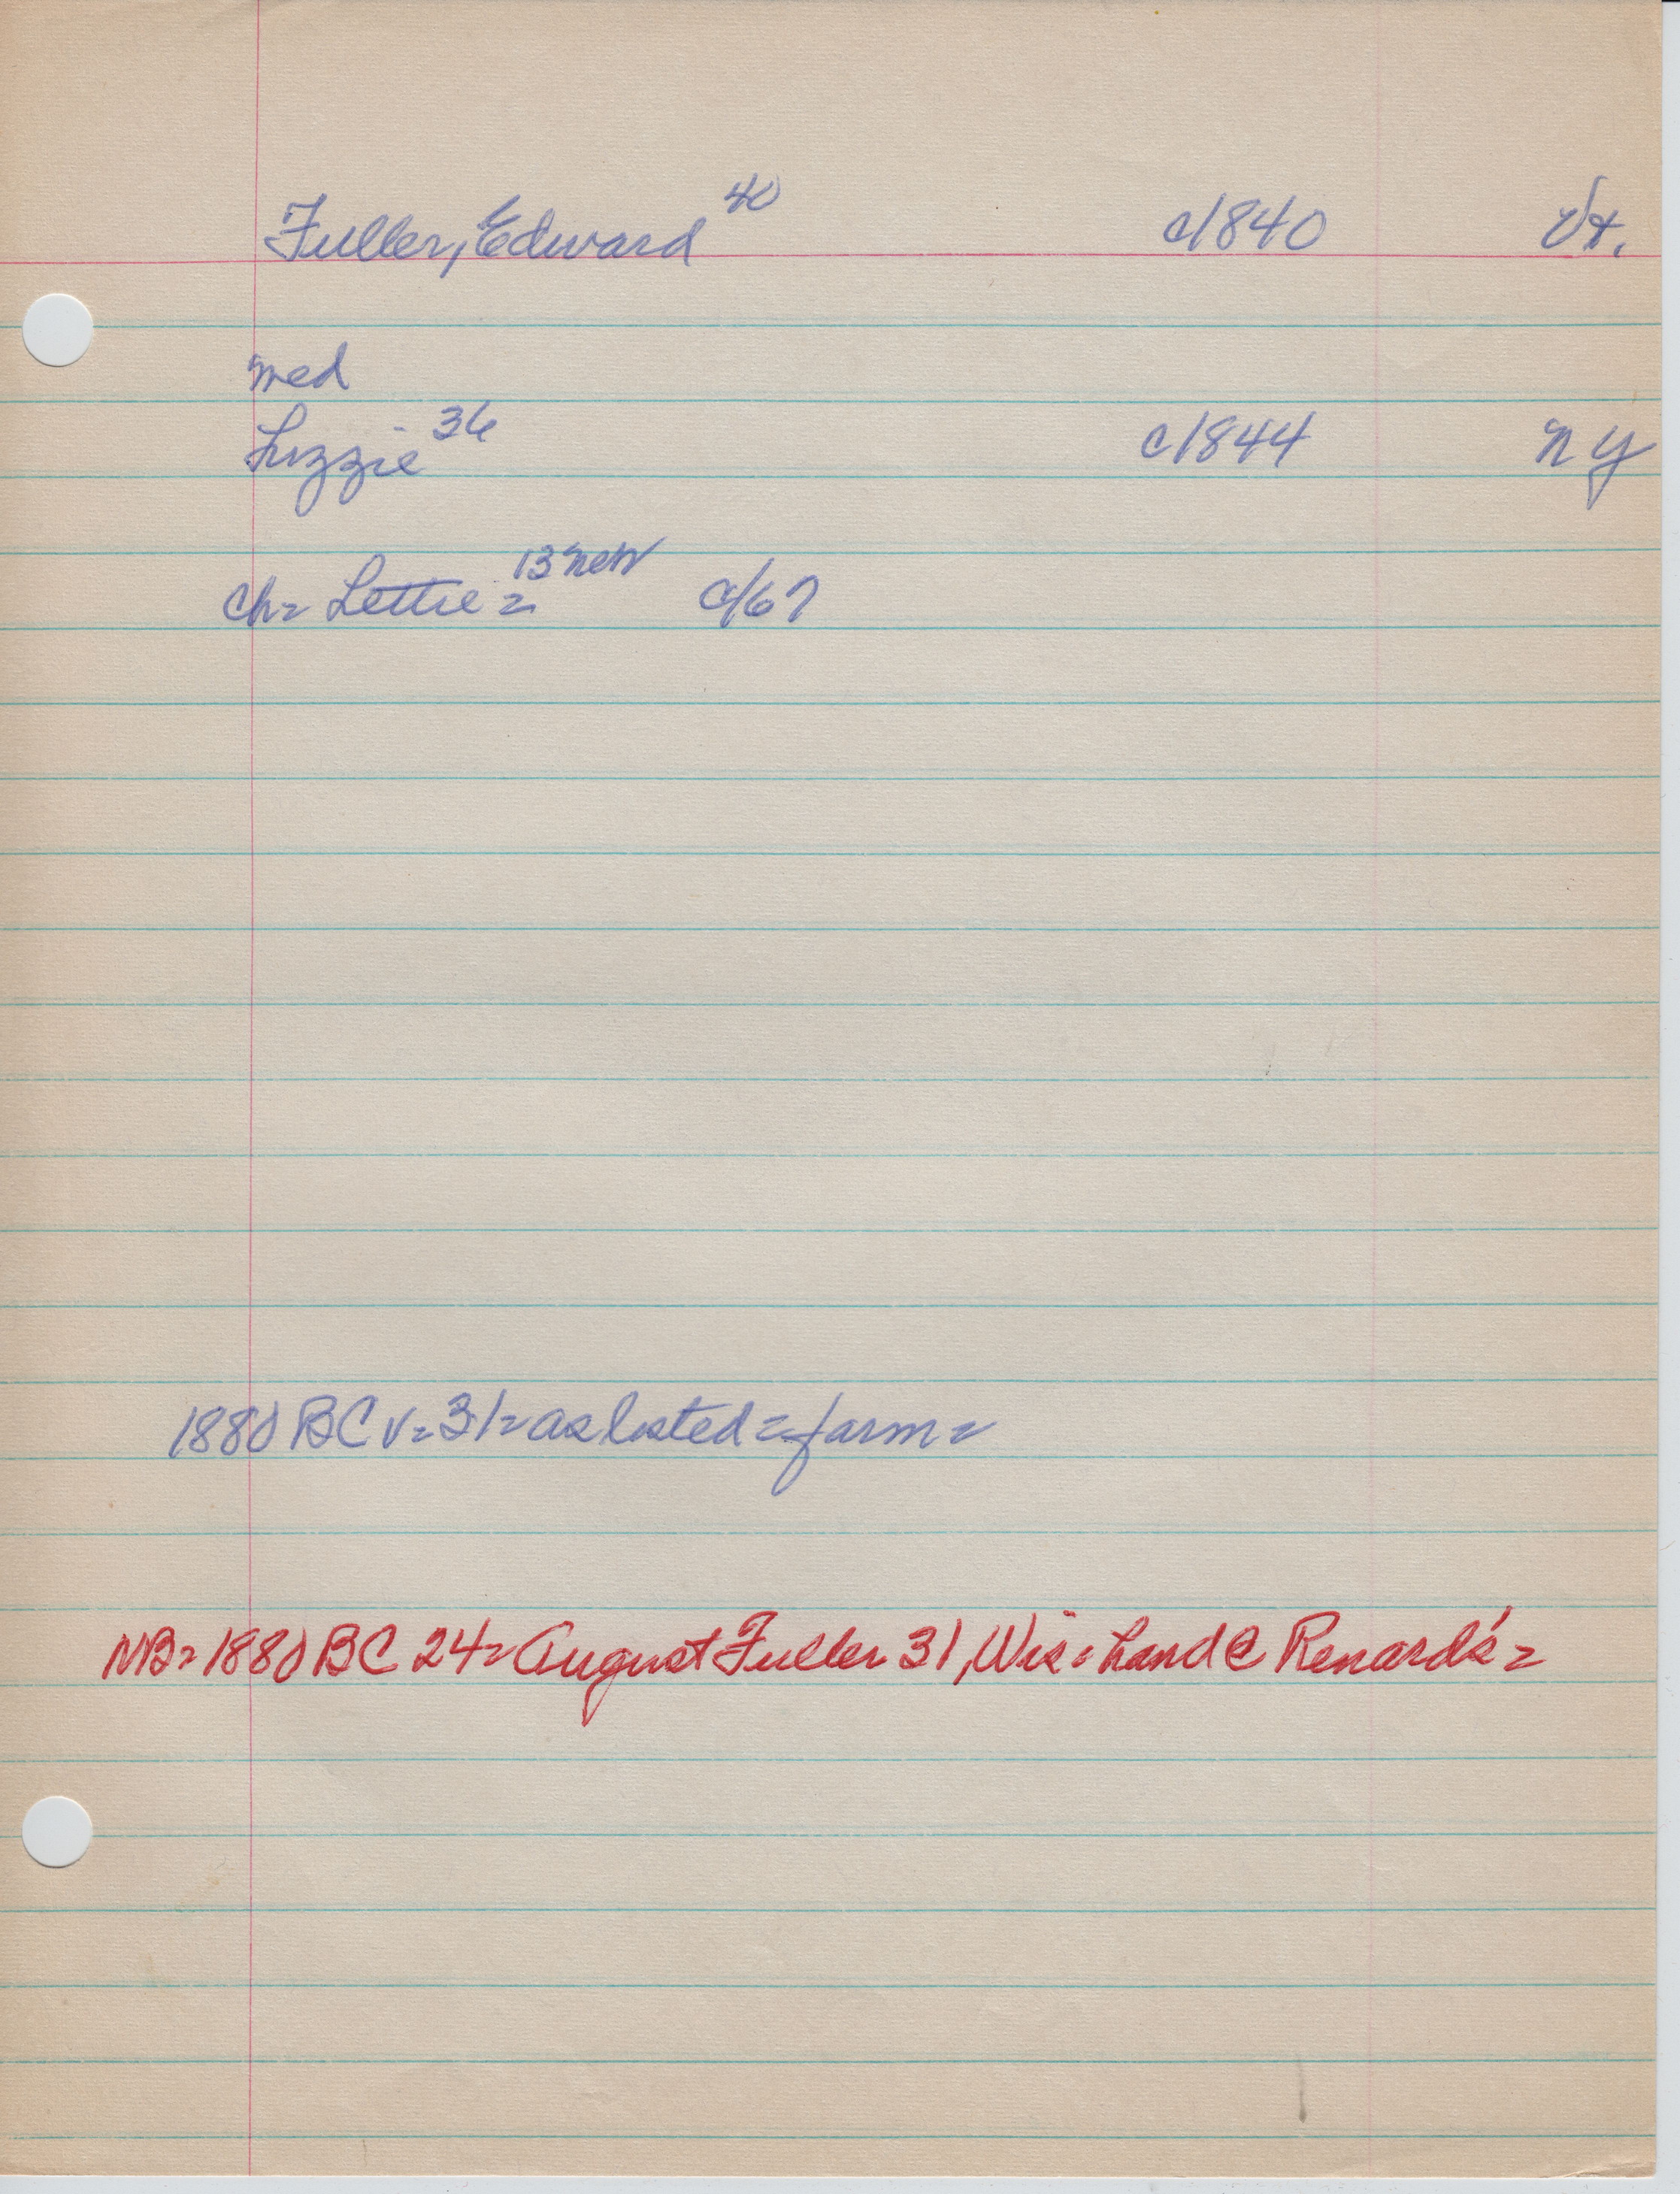 Fuller, Edward 40 c1840 Vt.
med
Lizzie 36 c1844 NY
ch= Lettie = 13 c/67
1880 BC v=31= as listed = farm=
NB= 1880 BC 24= August Fuller 31, Wis= hand @ Renard's =